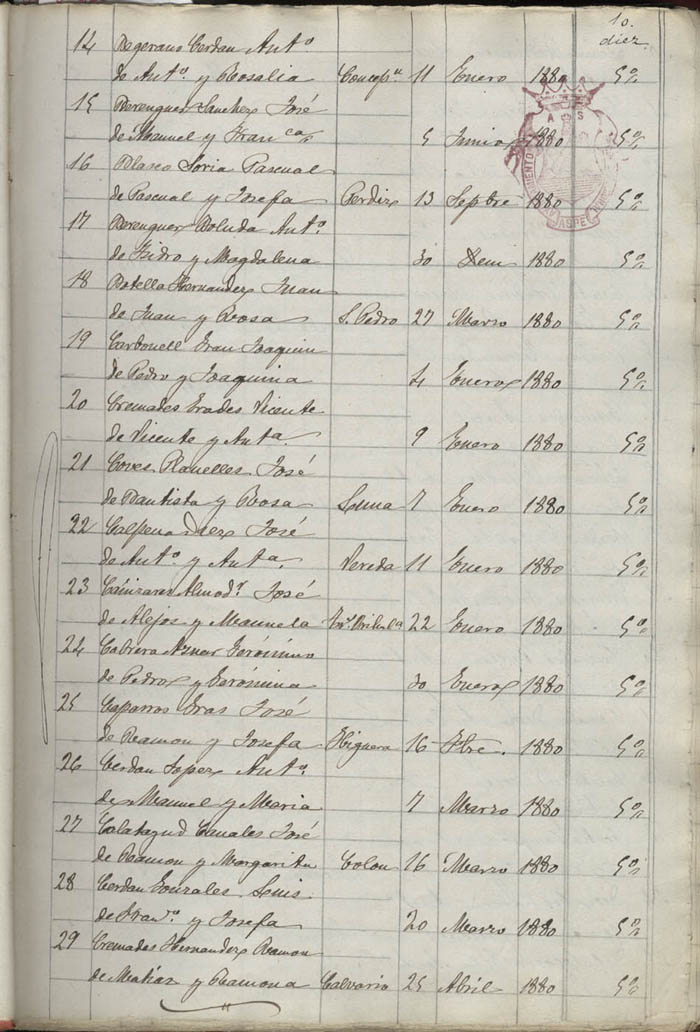 10.
diez
14 Begerano Cerdan Antº
de Antº y Rosalia Concepn 11 Enero 1880
15 Berenguer Sanchez José
de Manuel y Franca 5 Junio 1880
16 Blasco Soria Pascual
de Pascual y Josefa Perdiz 13 Septbre 1880
17 Berenguer Boluda Antº
de Isidro y Magdalena 30 Idem 1880
18 Botella Hernandez Juan
de Juan y Rosa S. Pedro 27 Marzo 1880
19 Carbonell Gran Joaquin
de Pedro y Joaquina 4 Enero 1880
20 Cremades Erades Vicente
de Vicente y Anta 9 Enero 1880
21 Coves Planelles José
de Bautista y Rosa Luna 7 Enero 1880
22 Calpena Diez José
de Antº y Anta Vereda 11 Enero 1880
23 Cañizares Almodr José
de Alejos y Manuela 22 Enero 1880
24 Cabrera Aznar Gerónimo
de Pedro y Gerónima 30 Enero 1880
25 Caparros Gras José
de Ramon y Josefa Higuera 16 Fbre. 1880
26 Cerdan Lopez Antº
de Manuel y Maria 7 Marzo 1880
27 Calatayud Canales José
de Ramon y Margarita Colon 16 Marzo 1880
28 Cerdan Gonzales Luis
de Franco y Josefa 20 Marzo 1880
29 Cremades Hernandez Ramon
de Matias y Ramona Calvario 25 Abril 1880
A S
ASPE